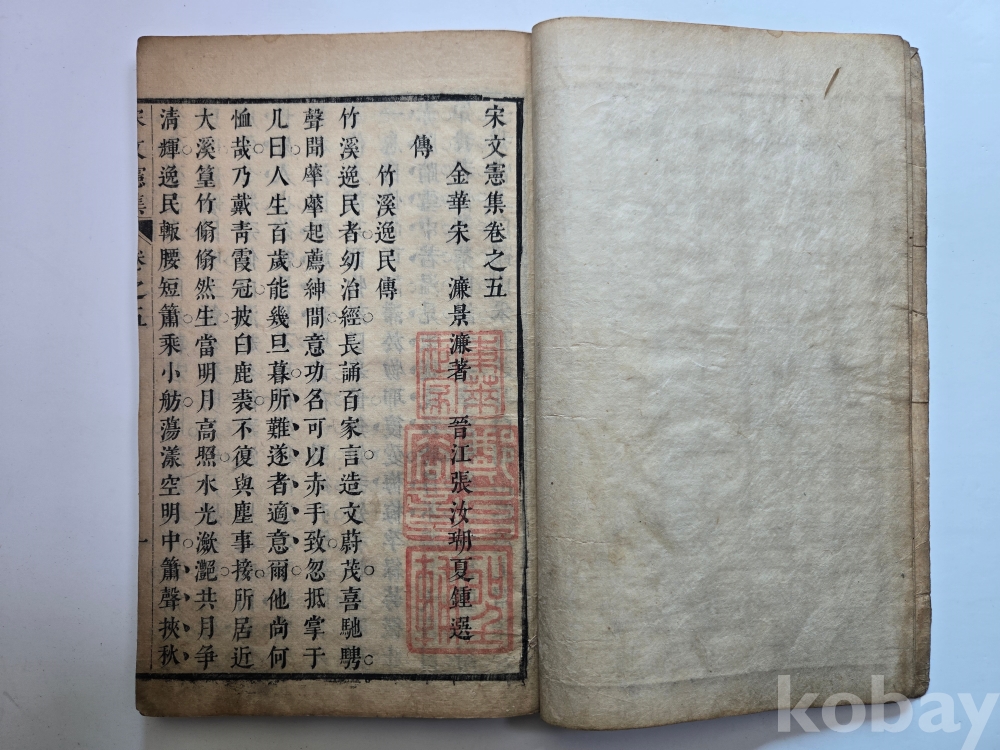 宋文憲集卷之五
金華宋　濂景濂著　晉江張汝瑚夏鍾選
傳
竹溪逸民傳
竹溪逸民者幼治經長誦百家言造文蔚茂喜馳騁
聲聞藉藉起薦紳間意功名可以赤手致忽抵掌于
几曰人生百歲能幾旦暮所難遂者適意爾他尚何
恤哉乃戴青霞冠披白鹿裘不復與塵事接所居近
大溪篁竹翛翛然生當明月高照水光瀲灔共月爭
清輝逸民輙腰短簫乘小舫蕩漾空明中簫聲挾秋
宋文憲集　卷之五　一
kobay